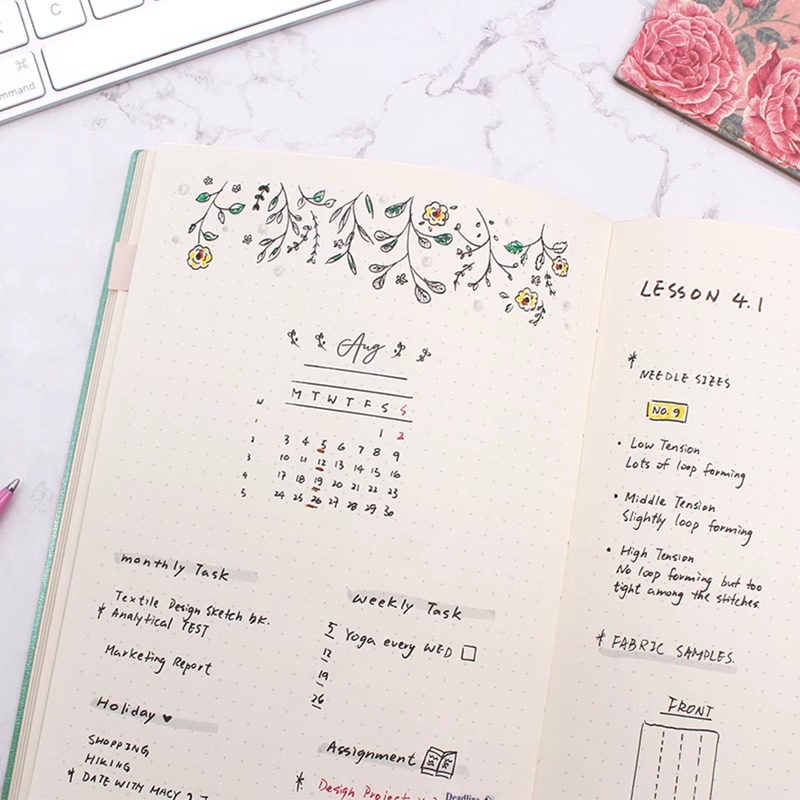 C
⌘
command
Aug
M T W T F S S
W
1 1 2
2 3 4 5 6 7 8 9
3 10 11 12 13 14 15 16
4 17 18 19 20 21 22 23
5 24 25 26 27 28 29 30
monthly Task
Textile Design Sketch bk.
* Analytical TEST
Marketing Report
Holiday ♥
SHOPPING
HIKING
* DATE WITH MACY
weekly Task
5 Yoga every WED
12
19
26
Assignment
* Design Project
Deadline
LESSON 4.1
* NEEDLE SIZES
NO. 9
• Low Tension
Lots of loop forming
• Middle Tension
Slightly loop forming
• High Tension
No loop forming but too
tight among the stitches.
* FABRIC SAMPLES.
FRONT